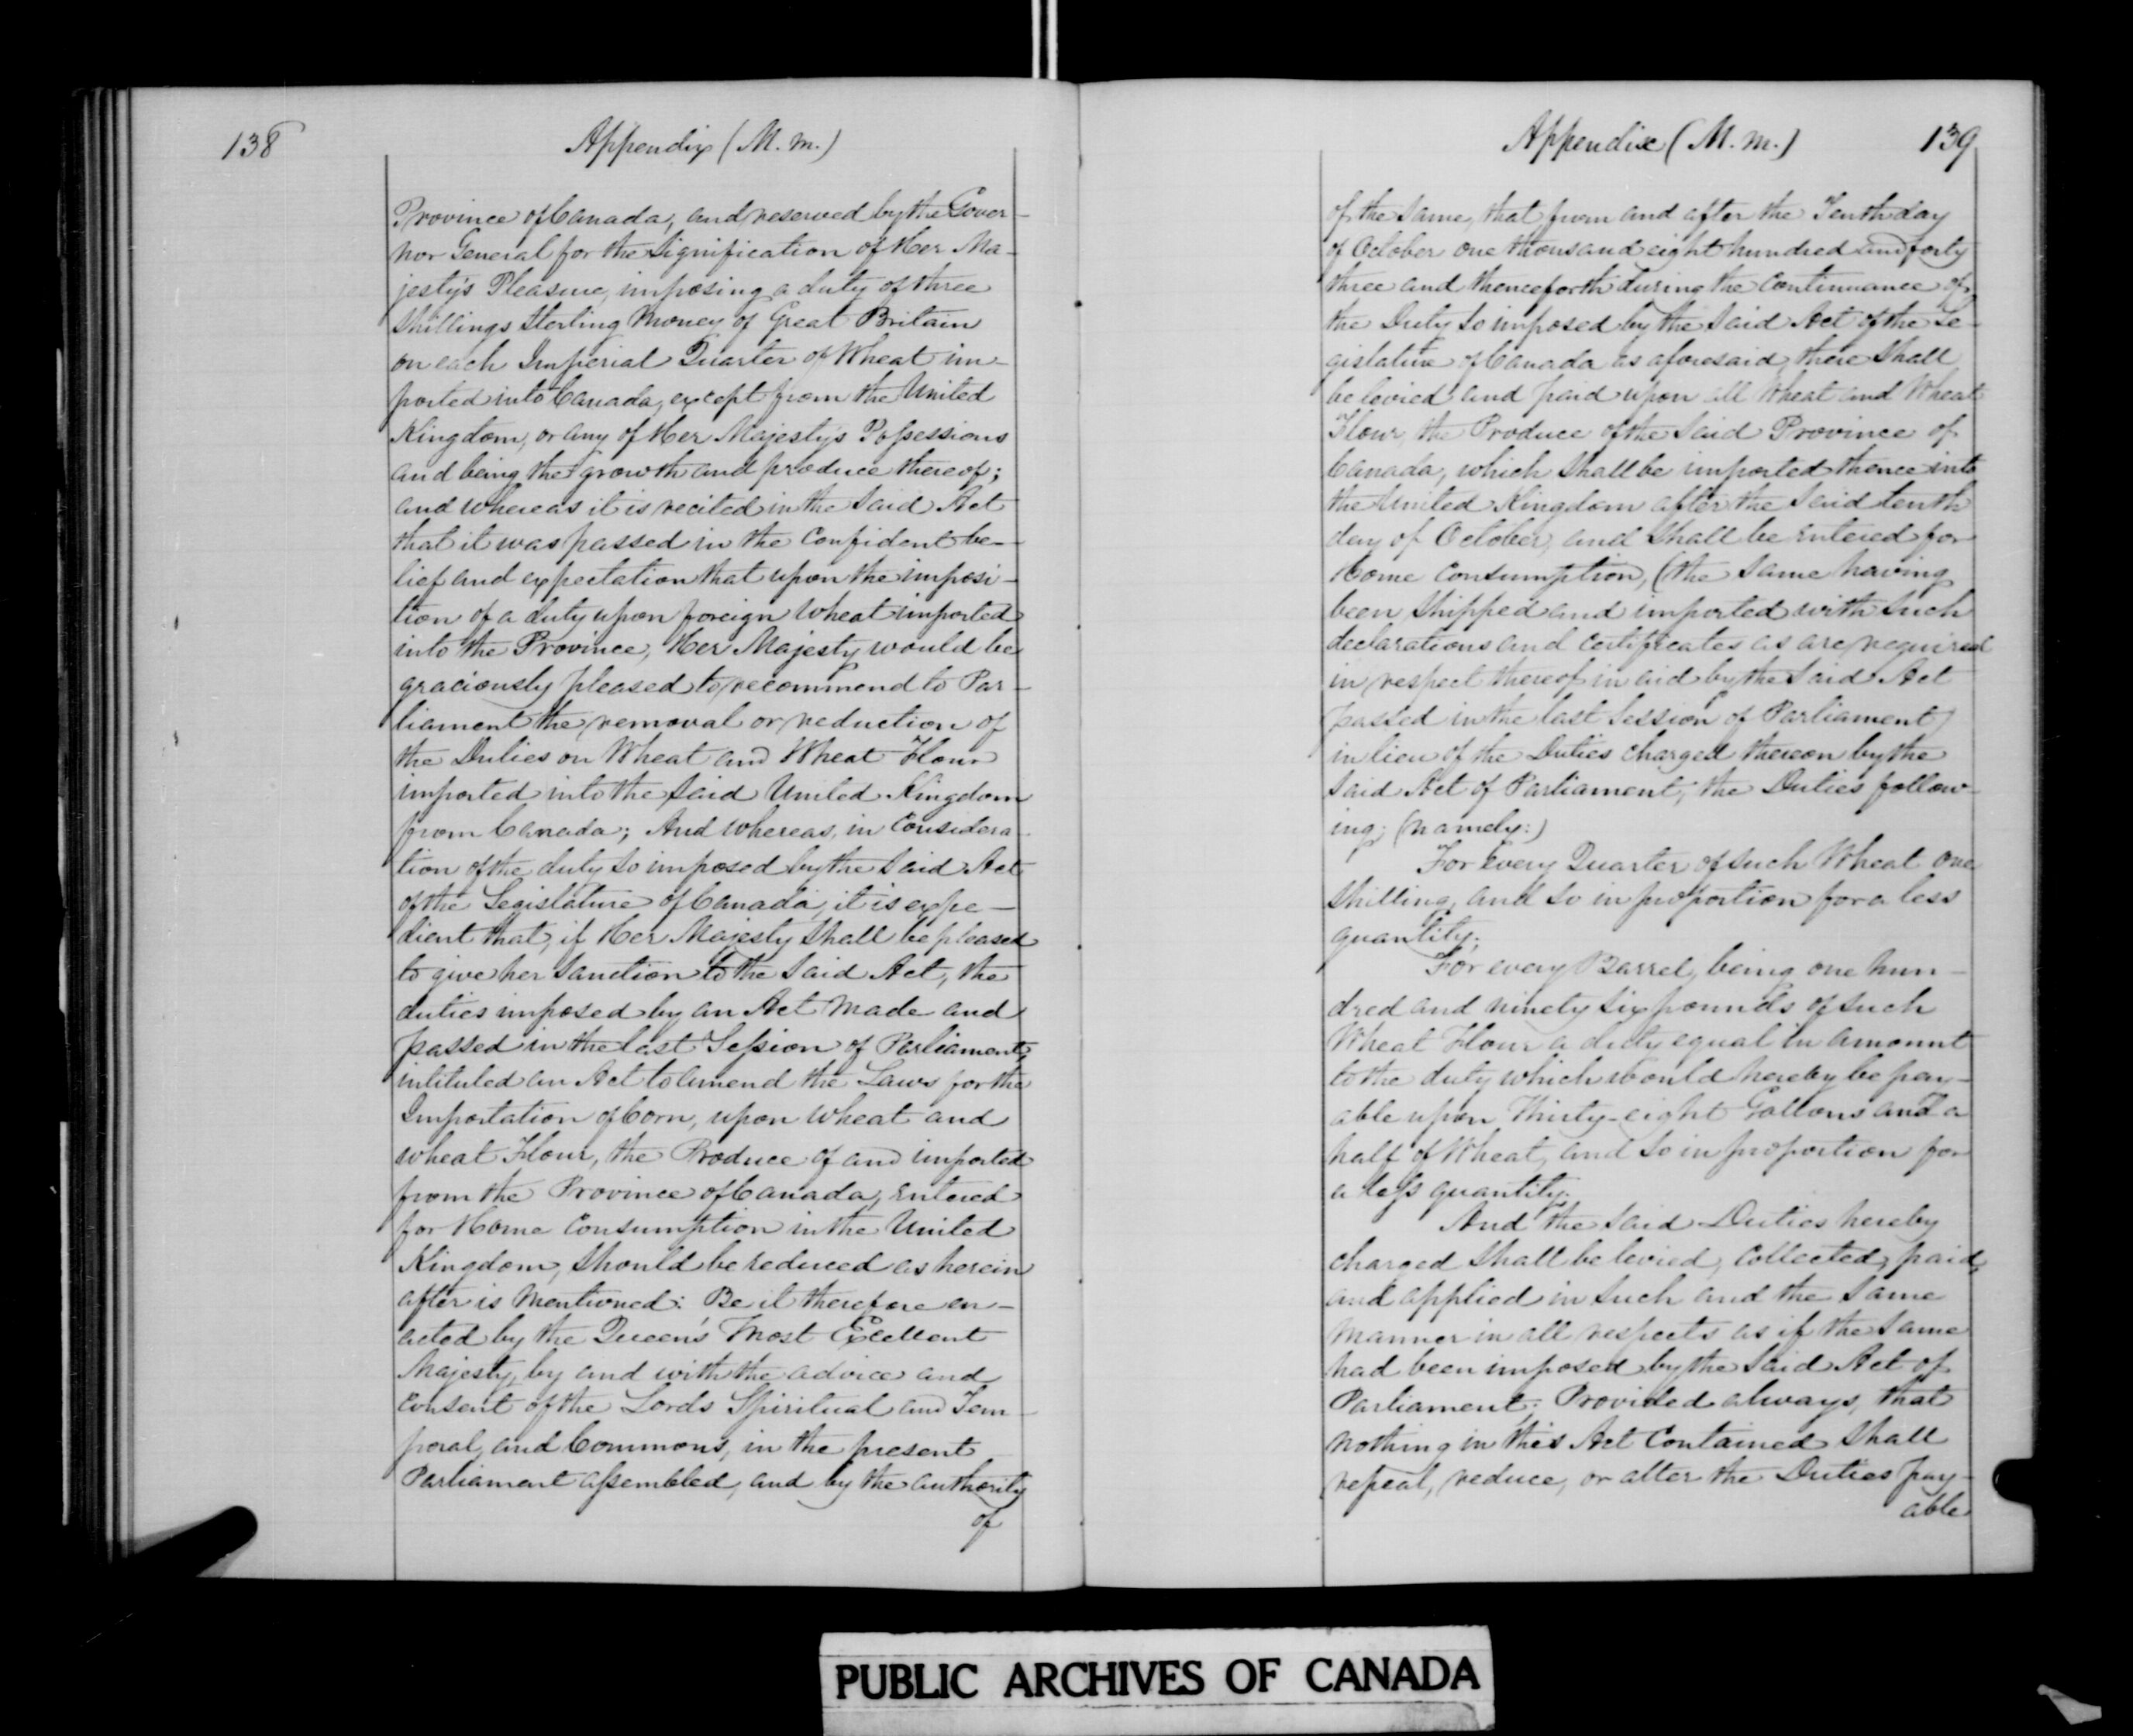 138
Appendix (M. m.)
Province of Canada, and reserved by the Gover-
nor General for the Signification of Her Ma-
jesty's Pleasure, imposing a duty of three
Shillings Sterling Money of Great Britain
on each Imperial Quarter of Wheat im-
ported into Canada, except from the United
Kingdom, or any of Her Majesty's Possessions
and being the growth and produce thereof;
and whereas it is recited in the said Act
that it was passed in the Confident be-
lief and expectation that upon the imposi-
tion of a duty upon foreign Wheat imported
into the Province, Her Majesty would be
graciously pleased to recommend to Par-
liament the removal or reduction of
the Duties on Wheat and Wheat Flour
imported into the said United Kingdom
from Canada; And whereas, in Considera-
tion of the duty so imposed by the said Act
of the Legislature of Canada, it is expe-
dient that, if Her Majesty shall be pleased
to give her sanction to the said Act, the
duties imposed by an Act made and
passed in the last Session of Parliament,
intituled an Act to amend the Laws for the
Importation of Corn, upon wheat and
wheat Flour, the Produce of and imported
from the Province of Canada, entered
for Home Consumption in the United
Kingdom, should be reduced as herein
after is mentioned: Be it therefore en-
acted by the Queen's Most Excellent
Majesty, by and with the advice and
consent of the Lords Spiritual and Tem-
poral, and Commons, in the present
Parliament assembled, and by the authority
of
Appendix (M. m.)
139
of the same, that from and after the Tenth day
of October one thousand eight hundred and forty
three and thenceforth during the Continuance of
the Duty so imposed by the said Act of the Le-
gislature of Canada as aforesaid, there shall
be levied and paid upon all Wheat and Wheat
Flour, the Produce of the said Province of
Canada, which shall be imported thence into
the United Kingdom after the said tenth
day of October, and shall be entered for
Home Consumption, (the same having
been shipped and imported with such
declarations and certificates as are required
in respect thereof in aid by the said Act
passed in the last Session of Parliament)
in lieu of the Duties charged thereon by the
said Act of Parliament, the Duties follow-
ing; (namely:)
For every Quarter of such Wheat one
shilling, and so in proportion for a less
quantity;
For every Barrel, being one hun-
dred and ninety six pounds of such
Wheat Flour a duty equal in amount
to the duty which would hereby be pay-
able upon Thirty-eight Gallons and a
half of Wheat, and so in proportion for
a less quantity.
And the said Duties hereby
charged shall be levied, collected, paid,
and applied in such and the same
manner in all respects as if the same
had been imposed by the said Act of
Parliament: Provided always, that
nothing in this Act Contained shall
repeal, reduce, or alter the Duties pay-
able
PUBLIC ARCHIVES OF CANADA